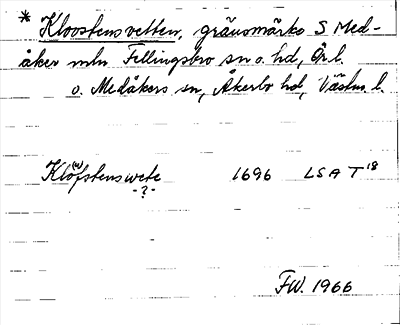 * Kloostensvetten, gränsmärke S Med-
åker mln Fellingsbro sn o. hd, Ör. l.
o. Medåkers sn, Åkerbo hd, Västm. l.
Klo(w)fstenswete 1696 LSA T 18
-?-
FW. 1966